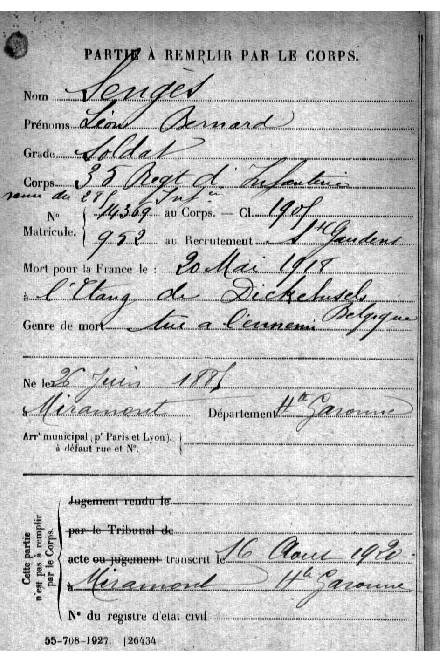 PARTIE À REMPLIR PAR LE CORPS.
Nom Sengès
Prénoms Léon Bernard
Grade Soldat
Corps 35 Regt d'Infanterie
venu du
N° 14369 au Corps. — Cl. 1905
Matricule. 952 au Recrutement St Gaudens
Mort pour la France le : 20 Mai 1918
à l'Etang de Dickebusch
Belgique
Genre de mort tué à l'ennemi
Né le 26 Juin 1885
à Miramont Département Hte Garonne
Arrt municipal (pr Paris et Lyon).
à défaut rue et N°.
Cette partie
n'est pas à remplir
par le Corps.
Jugement rendu le
par le Tribunal de
acte ou jugement transcrit le 16 Août 1920
à Miramont Hte Garonne
N° du registre d'état civil
55-708-1927. [26434